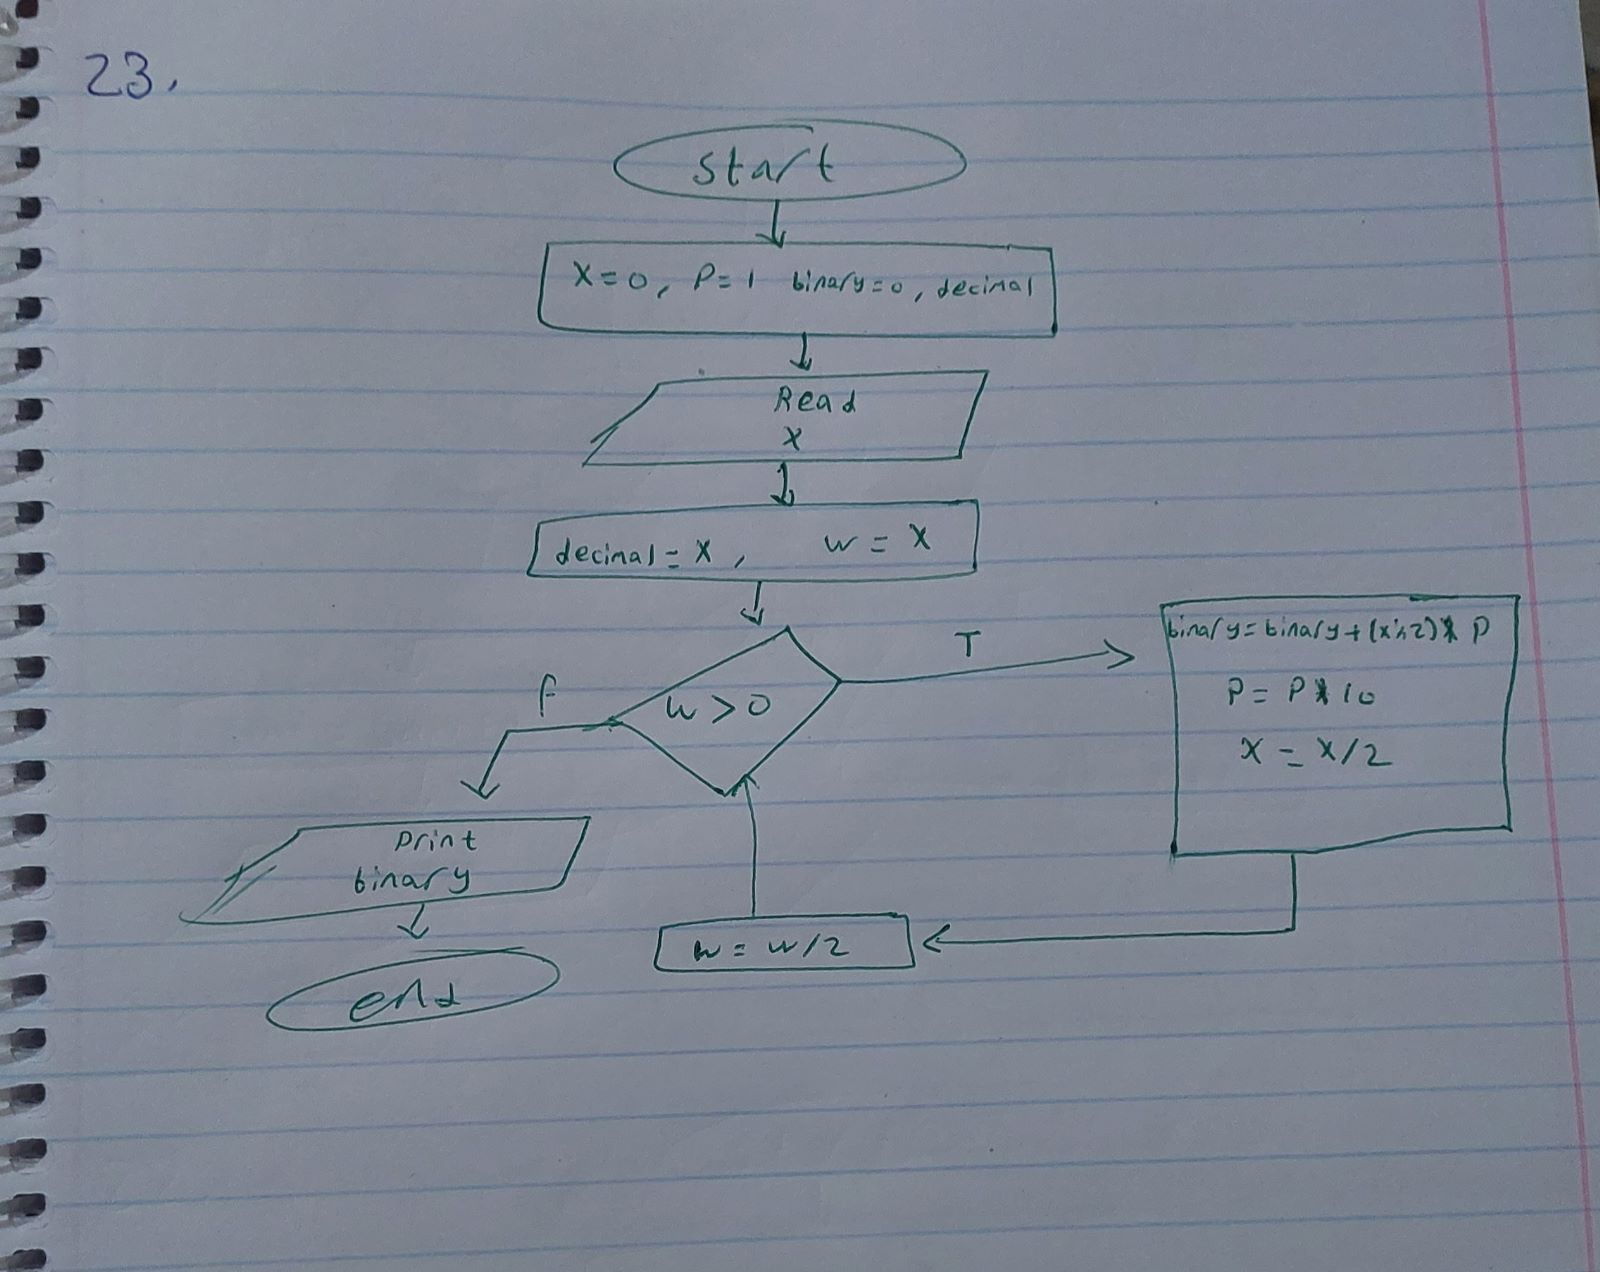 23.
start
X=0, P=1 binary=0, decimal
Read
X
decimal=X, w=X
w>0
T
F
binary=binary+(x%2)*P
P=P*10
X=X/2
w=w/2
print
binary
end